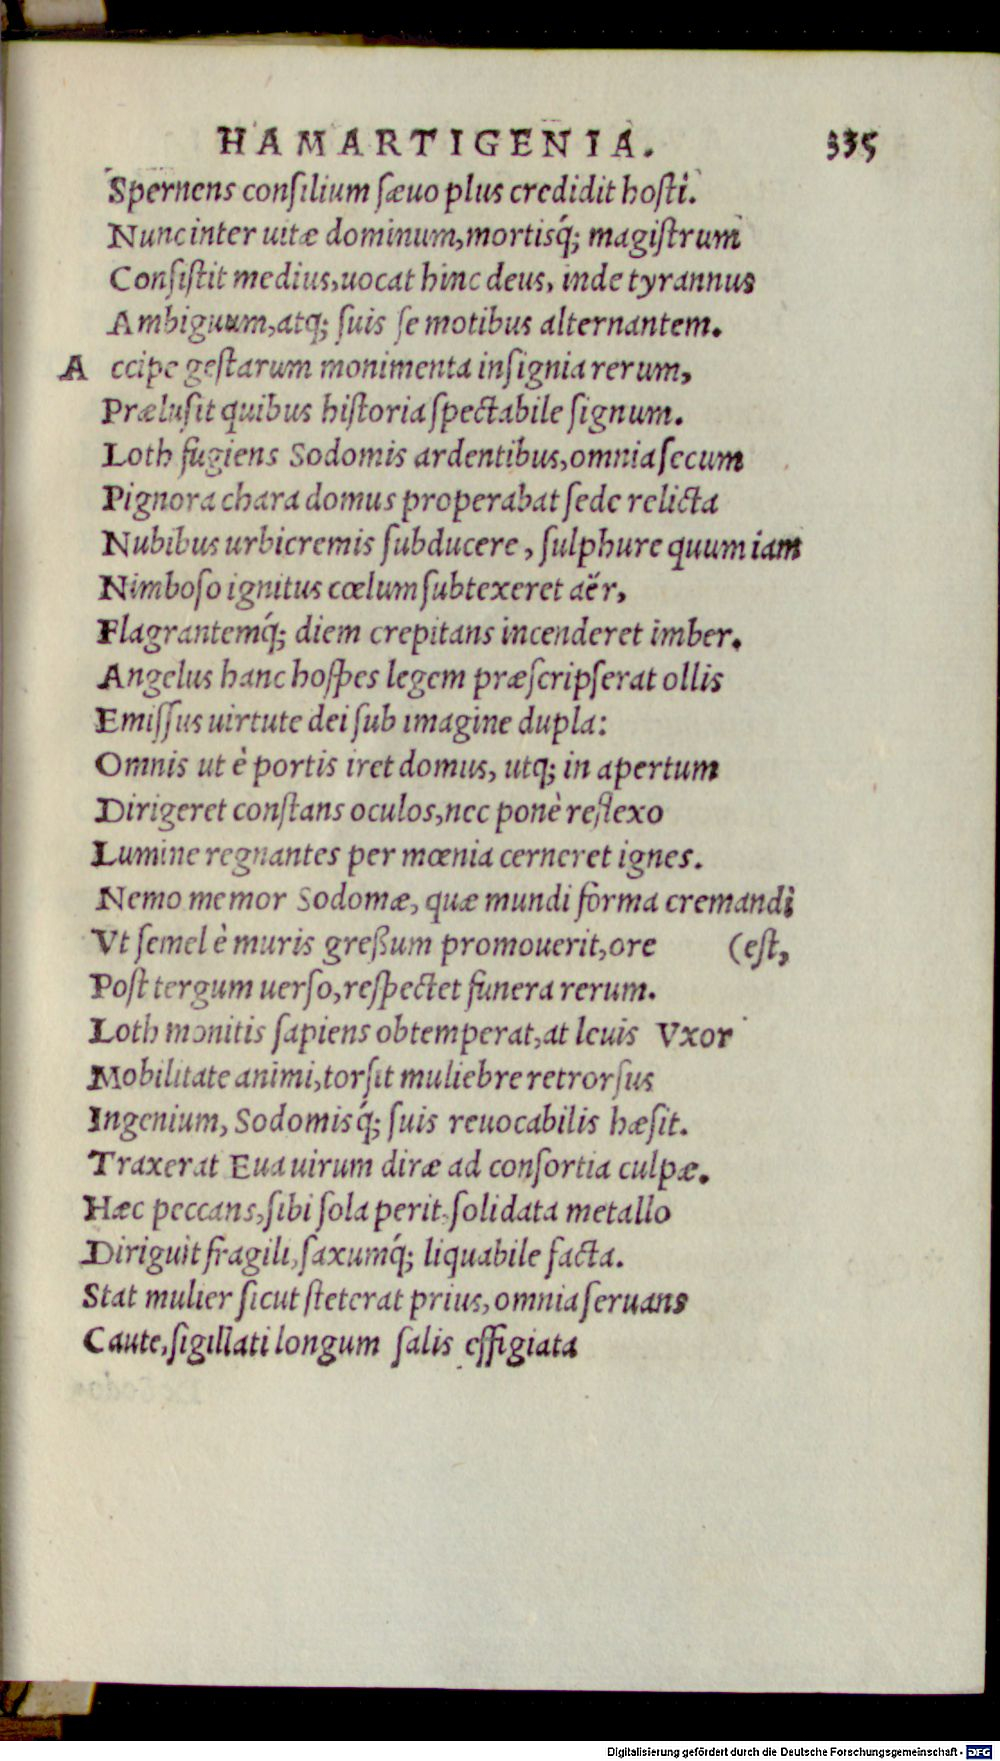 HAMARTIGENIA. 335
Spernens conſilium ſæuo plus credidit hoſti.
Nunc inter uitæ dominum, mortisq́; magiſtrum
Conſiſtit medius, uocat hinc deus, inde tyrannus
Ambiguum, atq; ſuis ſe motibus alternantem.
A ccipe geſtarum monimenta inſignia rerum,
Præluſit quibus hiſtoria ſpectabile ſignum.
Loth fugiens Sodomis ardentibus, omnia ſecum
Pignora chara domus properabat ſede relicta
Nubibus urbicremis ſubducere, ſulphure quum iam
Nimboſo ignitus cœlum ſubtexeret aër,
Flagrantemq́; diem crepitans incenderet imber.
Angelus hanc hoſpes legem præſcripſerat ollis
Emiſſus uirtute dei ſub imagine dupla:
Omnis ut è portis iret domus, utq; in apertum
Dirigeret conſtans oculos, nec ponè reflexo
Lumine regnantes per mœnia cerneret ignes.
Nemo memor Sodomæ, quæ mundi forma cremandi
Vt ſemel è muris greßum promouerit, ore (eſt,
Poſt tergum uerſo, reſpectet funera rerum.
Loth monitis ſapiens obtemperat, at leuis Vxor
Mobilitate animi, torſit muliebre retrorſus
Ingenium, Sodomisq́; ſuis reuocabilis hæſit.
Traxerat Eua uirum diræ ad conſortia culpæ.
Hæc peccans, ſibi ſola perit. ſolidata metallo
Diriguit fragili, ſaxumq́; liquabile facta.
Stat mulier ſicut ſteterat prius, omnia ſeruans
Caute, ſigillati longum ſalis effigiata
Digitalisierung gefördert durch die Deutsche Forschungsgemeinschaft - DFG